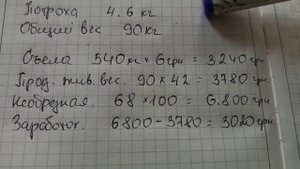 Потроха 4,6 кг
Общий вес 90 кг
Съела 540 кг × 6 грн = 3240 грн
Прод. жив. вес. 90 × 42 = 3780 грн
Необрезная. 68 × 100 = 6.800 грн
Заработок. 6800 - 3780 = 3020 грн